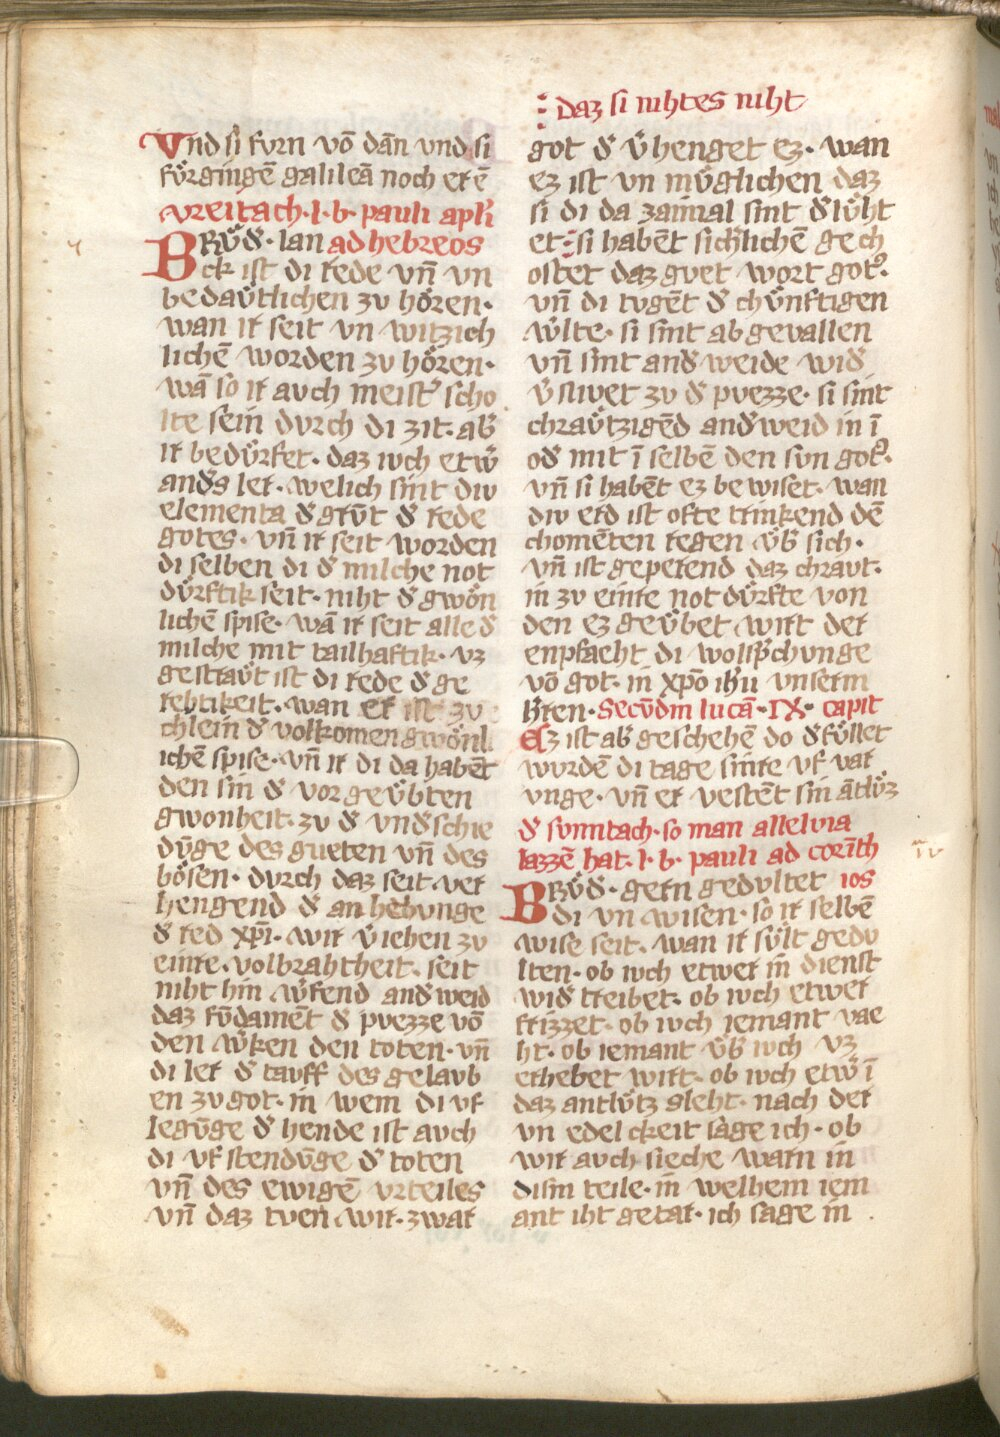 Vnd si fvrn vō dān vnd si
fu̍rgingē galileā noch etē
vreitach · l · b · pauli apl̄i
BRv̊d̕ · lan ad hebreos
ck ist di rede vn̄ vn
bedav̍tlichen zv hören ·
wan ir seit vn witzich
lichē worden zv hören ·
wā so ir avch meist̕ scho
lte sein dvrch di zit · ab̕
ir bedv̍rfet · daz ivch etw̕
and̕s ler · welich sint div
elementa d̕ grv̄t d̕ rede
gotes · vn̄ ir seit worden
di selben di d̕ milche not
dv̍rftik seit · niht d̕ gwön
lichē spise · wā ir seit alle d̕
milche mit tailhaftik · vz
gestrav̍t ist di rede d̕ ge
rehtikeit · wan er ist zv
chlein d̕ volkomen gwönl
ichē spise · vn̄ ir di da habēt
den sin d̕ vor gev̍bten
gwonheit · zv d̕ vnd̕schie
dv̄ge des gveten vn̄ des
bösen · dvrch daz seit ver
hengend d̕ an hebvnge
d̕ red xp̄i · wir v̕iehen zv
einre · volbrahtheit · seit
niht hin w̕fend and̕weid
daz fv̄damēt d̕ pvezze vō
den w̕ken den toten · vn̄
di ler d̕ tavff des gelavb
en zv got · in wem di vf
legv̄ge d̕ hende ist avch
di vf stendv̄ge d̕ toten
vn̄ des ewigē vrteiles
vn̄ daz tven wir · zwar
daz si nihtes niht
got d̕ v̕henget ez · wan
ez ist vn mv̍glichen daz
si di da zaimal sint d̕lv̍ht
et si habēt sich̕lichē gech
ostet daz gvet wort got̕ ·
vn̄ di tvgēt d̕ chv̍nftigen
w̕lte · si sint ab gevallen
vn̄ sint and̕ weide wid̕
v̕nivet zv d̕ pvezze · si sint
chrav̍tzigēd and̕weid in ī
od̕ mit ī selbē den svn got̕ ·
vn̄ si habēt ez bewiset · wan
div erd ist ofte trinkend dē
chomēten regen v̍b̕ sich ·
vn̄ ist geperend daz chravt ·
in zv einre not dv̍rfte von
den ez gev̍bet wirt der
enpfaeht di wolsp̄chvnge
vō got · in xp̄o ih̄u vnserm
h̕ren · Secv̄dm lucā · IX · capit
Ez ist ab̕ geschehē do d̕fv̍llet
wurdē di tage sinre vf var
vnge · vn̄ er vestēt sin ātlv̍z
d̕ svnntach · so man alleluia
lazzē hat · l · b · pauli ad corīth
BRv̊d̕ · gern gedvltet ios
di vn wisen · so ir selbē
wise seit · wan ir sv̍lt gedv
lten · ob ivch etwer in dienst
wid̕ treibet · ob ivch etwer
frizzet · ob ivch iemant vae
ht · ob iemant v̍b̕ ivch vz
erhebet wirt · ob ivch etw̕ ī
daz antlv̍tz sleht · nach der
vn edel ckeit sage ich · ob
wir avch sieche warn in
dism teile · in welhem iem
ant iht getar · ich sage in